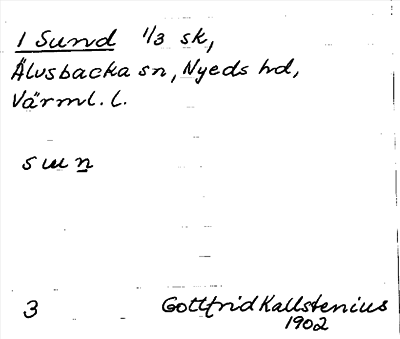 1 Sund 1/3 sk,
Älvsbacka sn, Nyeds hd,
Värml. l.
sɯn
3 Gottfrid Kallstenius
1902